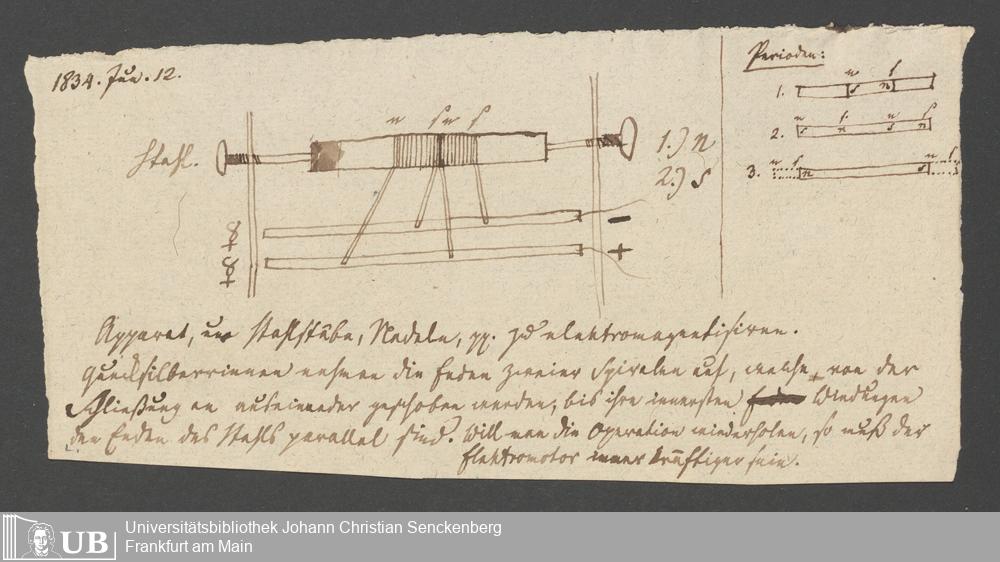 1834. Jun. 12.
Perioden:
n s
1. s n
n s n s
2. s n s n
n s n s
3. n s
n s n s
Stahl.
1.) n
2.) s
☿ −
☿ +
Apparat, um Stahlstäbe, Nadeln, pp. zu elektromagnetisiren.
Quecksilberrinnen nehmen die Enden zweier Spiralen auf, welche von der
Schließung an auseinander geschoben werden, bis ihre innersten Windungen
den Enden des Stahls parallel sind. Will man die Operation wiederholen, so muß der
Elektromotor immer kräftiger sein.
UB
Universitätsbibliothek Johann Christian Senckenberg
Frankfurt am Main